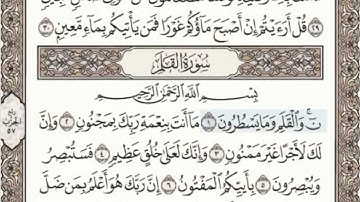 قُلْ أَرَءَيْتُمْ إِنْ أَصْبَحَ مَآؤُكُمْ غَوْرًا فَمَن يَأْتِيكُم بِمَآءٍ مَّعِينٍۭ ٣٠
سُورَةُ الْقَلَمِ
بِسْمِ ٱللَّهِ ٱلرَّحْمَٰنِ ٱلرَّحِيمِ
نٓ ۚ وَٱلْقَلَمِ وَمَا يَسْطُرُونَ ١ مَآ أَنتَ بِنِعْمَةِ رَبِّكَ بِمَجْنُونٍ ٢ وَإِنَّ
لَكَ لَأَجْرًا غَيْرَ مَمْنُونٍ ٣ وَإِنَّكَ لَعَلَىٰ خُلُقٍ عَظِيمٍ ٤ فَسَتُبْصِرُ
وَيُبْصِرُونَ ٥ بِأَييِّكُمُ ٱلْمَفْتُونُ ٦ إِنَّ رَبَّكَ هُوَ أَعْلَمُ بِمَن ضَلَّ
الحزب
٥٧